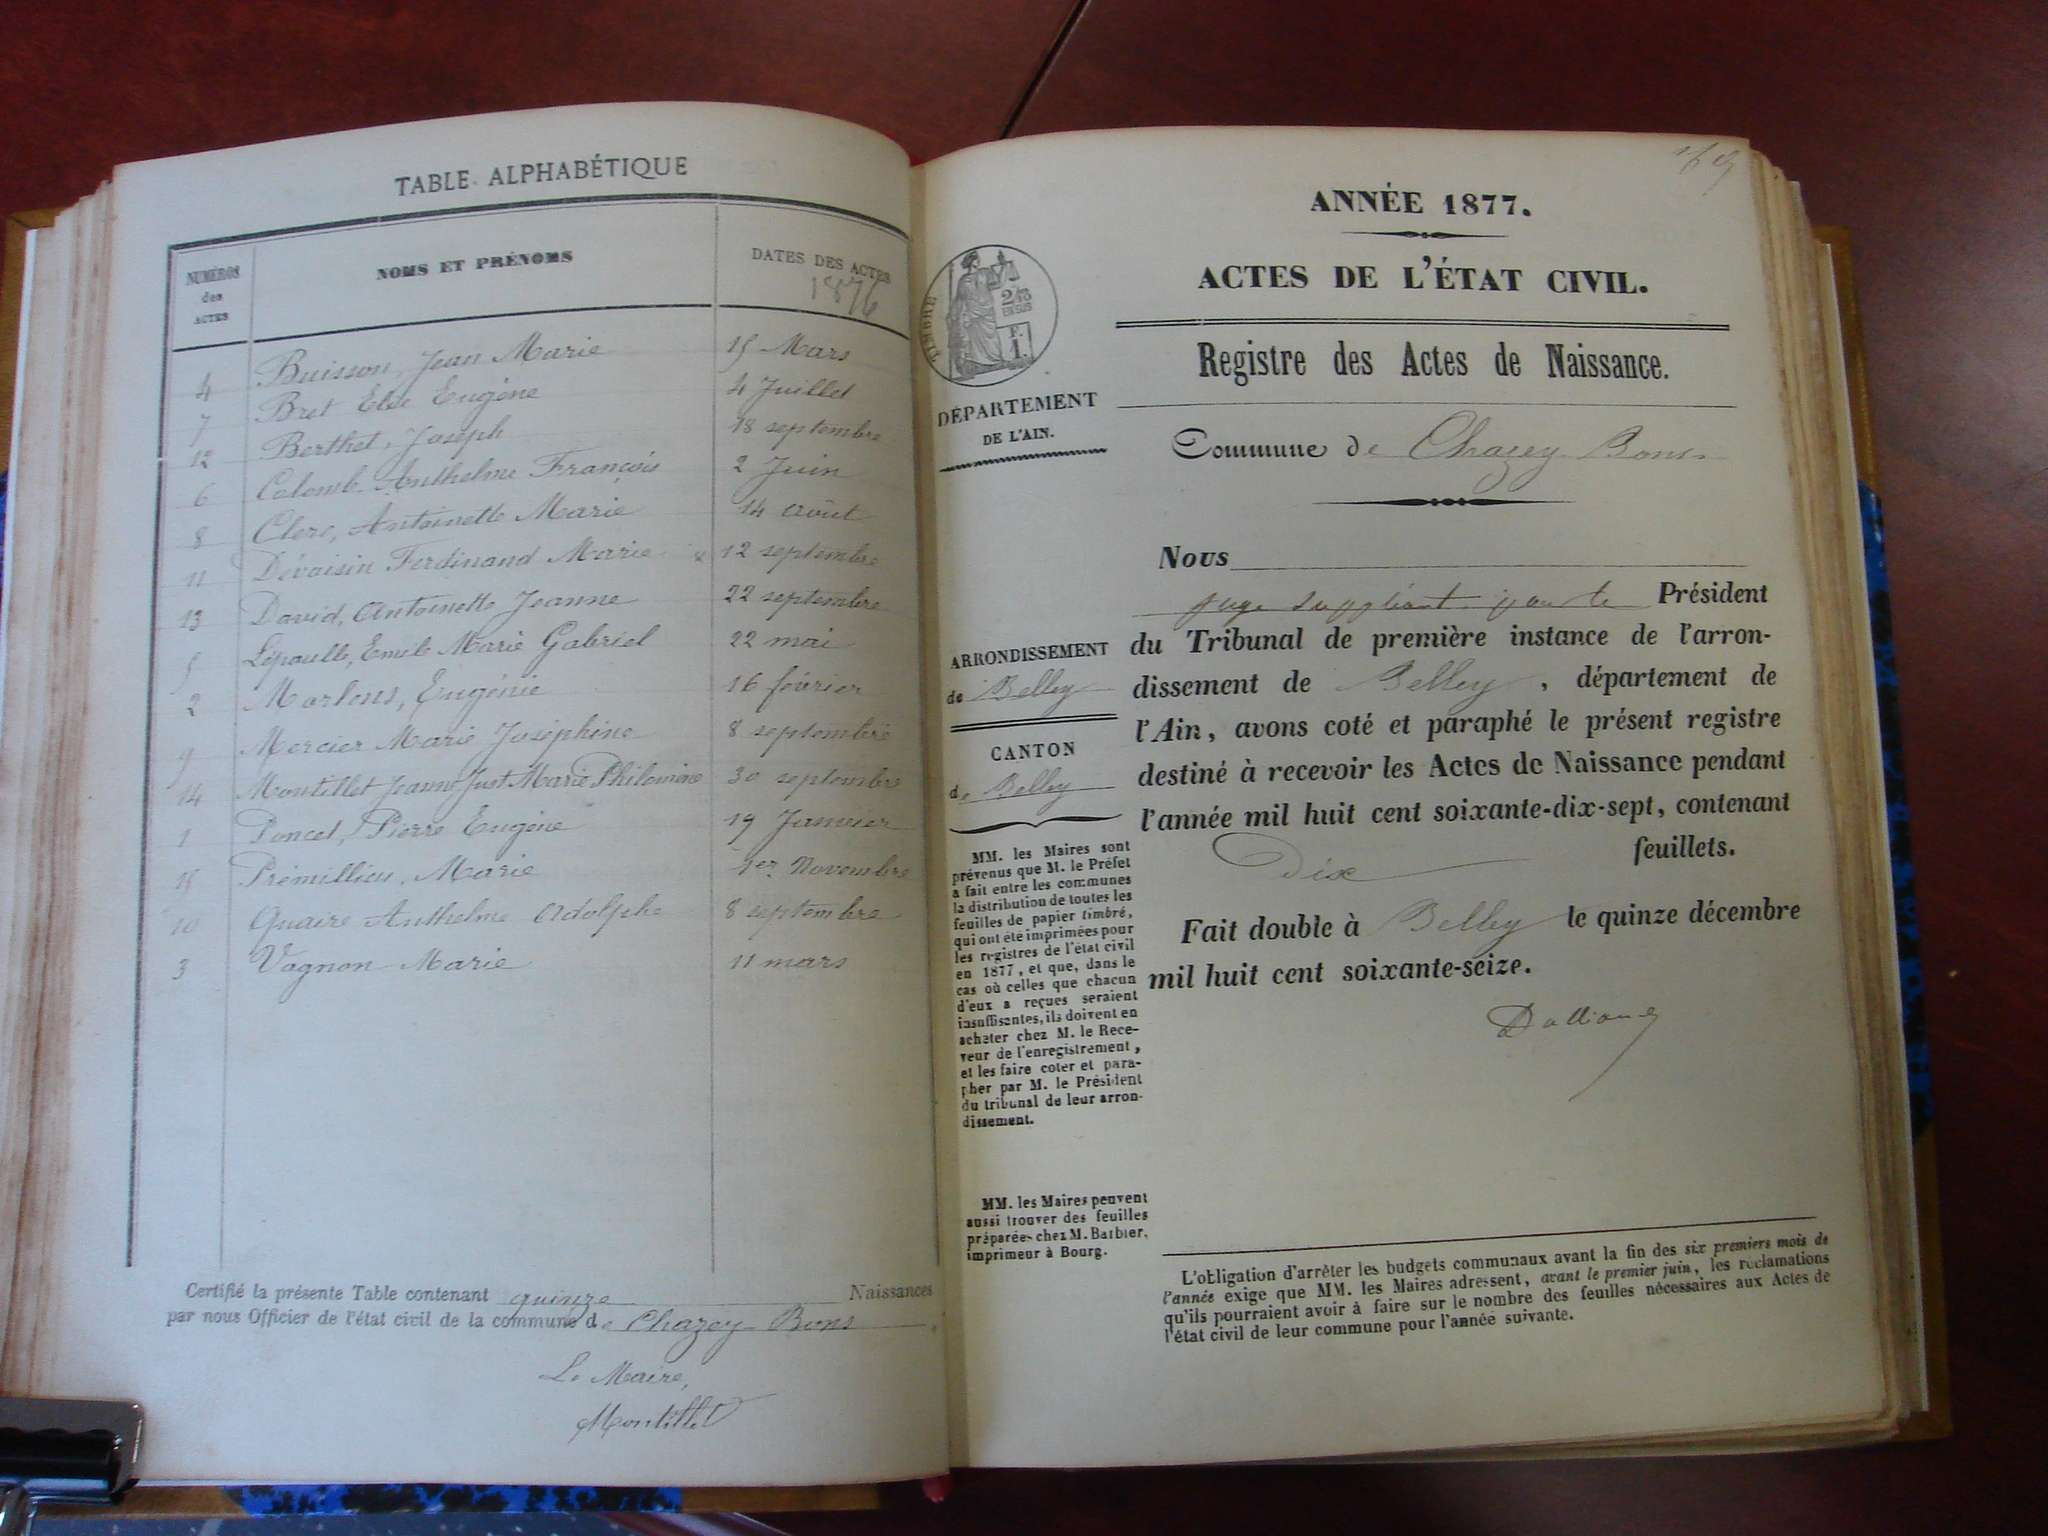 TABLE ALPHABÉTIQUE
NUMÉROS des ACTES NOMS ET PRÉNOMS DATES DES ACTES
1876
4 Buisson, Jean Marie 15 Mars
7 Bret Elie Eugène 4 Juillet
12 Berthet, Joseph 18 septembre
6 Colomb Anthelme François 2 Juin
8 Clerc, Antoinette Marie 14 août
11 Dévoisin Ferdinand Marie 12 septembre
13 David, Antoinette Jeanne 22 septembre
5 Emile Marie Gabriel 22 mai
2 Eugénie 16 février
9 Mercier Marie Joséphine 8 septembre
14 Montillet Jeanne Just Marie Philomène 30 septembre
1 Poncet, Pierre Eugène 19 Janvier
15 Prémillieu, Marie 1er Novembre
10 Quaire Anthelme Adolphe 8 septembre
3 Vagnon Marie 11 mars
Certifié la présente Table contenant quinze Naissances
par nous Officier de l'état civil de la commune de Chazey Bons
Le Maire,
Montillet
ANNÉE 1877.
ACTES DE L'ÉTAT CIVIL.
TIMBRE
2/10
EN SUS
F.
1.
Registre des Actes de Naissance.
DÉPARTEMENT
DE L'AIN.
Commune de Chazey Bons
Nous
juge suppléant pour le Président
du Tribunal de première instance de l'arron-
dissement de Belley, département de
l'Ain, avons coté et paraphé le présent registre
destiné à recevoir les Actes de Naissance pendant
l'année mil huit cent soixante-dix-sept, contenant
Dix feuillets.
Fait double à Belley le quinze décembre
mil huit cent soixante-seize.
ARRONDISSEMENT
de Belley
CANTON
de Belley
MM. les Maires sont
prévenus que M. le Préfet
a fait entre les communes
la distribution de toutes les
feuilles de papier timbré,
qui ont été imprimées pour
les registres de l'état civil
en 1877, et que, dans le
cas où celles que chacun
d'eux a reçues seraient
insuffisantes, ils doivent en
acheter chez M. le Rece-
veur de l'enregistrement,
et les faire coter et para-
pher par M. le Président
du tribunal de leur arron-
dissement.
MM. les Maires peuvent
aussi trouver des feuilles
préparées chez M. Barbier,
imprimeur à Bourg.
L'obligation d'arrêter les budgets communaux avant la fin des six premiers mois de
l'année exige que MM. les Maires adressent, avant le premier juin, les réclamations
qu'ils pourraient avoir à faire sur le nombre des feuilles nécessaires aux Actes de
l'état civil de leur commune pour l'année suivante.